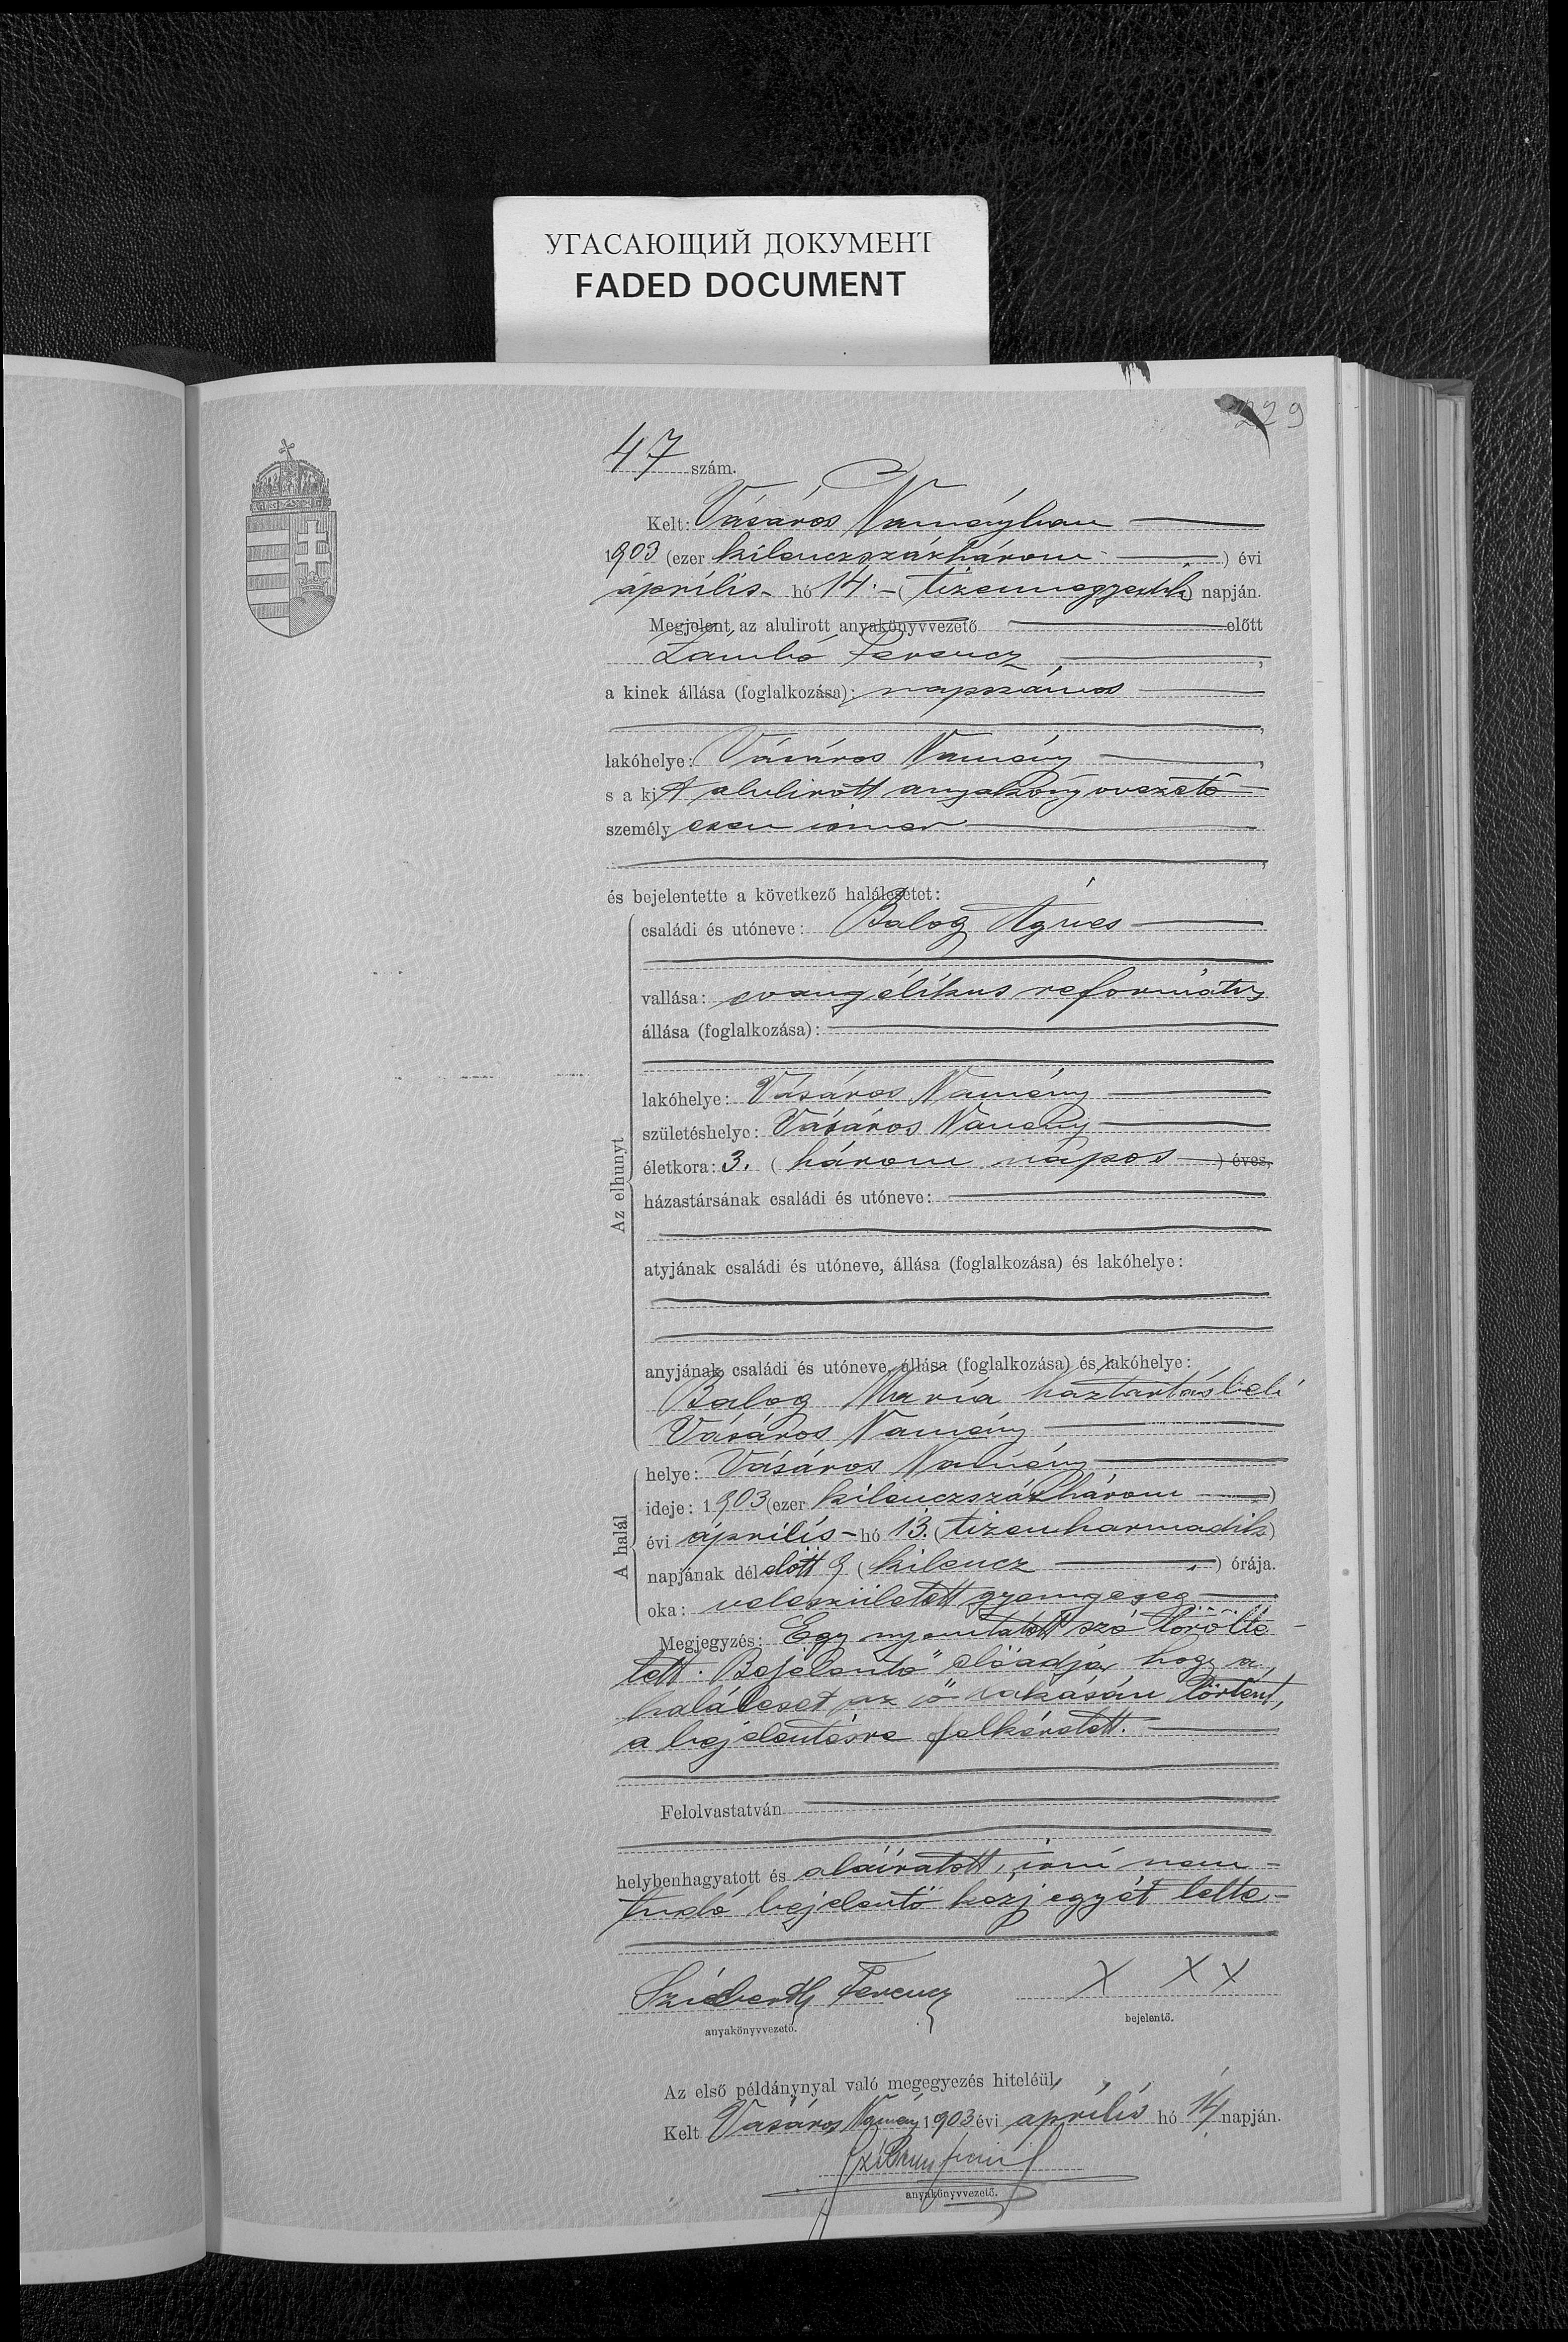 УГАСАЮЩИЙ ДОКУМЕНТ
FADED DOCUMENT
229
47 szám.
Kelt: Vásáros Naményban
1903 (ezer kilenczszázhárom) évi
április hó 14. (tizennegyedik) napján.
Megjelent az alulirott anyakönyvvezető előtt
Ferencz,
a kinek állása (foglalkozása): napszámos
,
lakóhelye: Vásáros Namény,
s a kit alulirott anyakönyvvezető
személyesen ismer
,
és bejelentette a következő halálesetet:
Az elhunyt
családi és utóneve: Balog Ágnes
vallása: evangélikus református
állása (foglalkozása):
lakóhelye: Vásáros Namény
születéshelye: Vásáros Namény
életkora: 3. (három napos) éves,
házastársának családi és utóneve:
atyjának családi és utóneve, állása (foglalkozása) és lakóhelye:
anyjának családi és utóneve, állása (foglalkozása) és lakóhelye:
Balog Mária háztartásbeli
Vásáros Namény
A halál
helye: Vásáros Namény
ideje: 1903 (ezer kilenczszázhárom)
évi április hó 13. (tizenharmadik)
napjának délelőtt 9 (kilencz) órája.
oka: veleszületett gyengeség
Megjegyzés: Egy nyomtatott szó törölte-
tett. Bejelentő előadja, hogy a
haláleset az ő lakásán történt,
a bejelentésre felkéretett.
Felolvastatván
helybenhagyatott és aláiratott, irni nem
tudó bejelentő kézjegyét tette
Ferencz
anyakönyvvezető.
X X X
bejelentő.
Az első példánynyal való megegyezés hiteléül,
Kelt Vásáros Namény 1903 évi április hó 14 napján.
anyakönyvvezető.